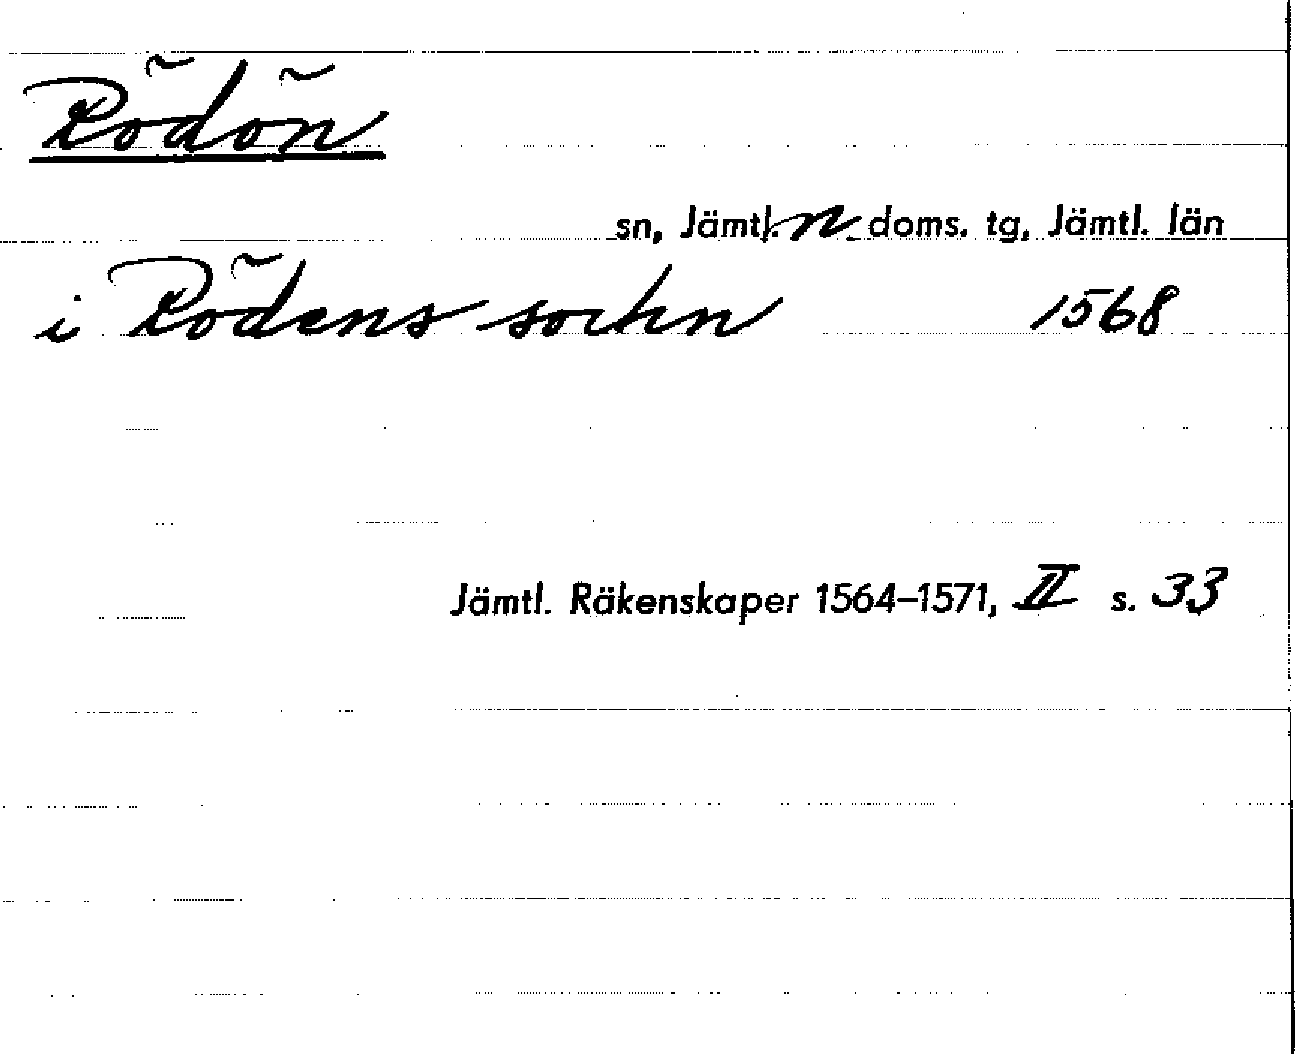 Rödön
sn, Jämtl. n doms. tg, Jämtl. län
i Rödens sockn 1568
Jämtl. Räkenskaper 1564–1571, II s. 33